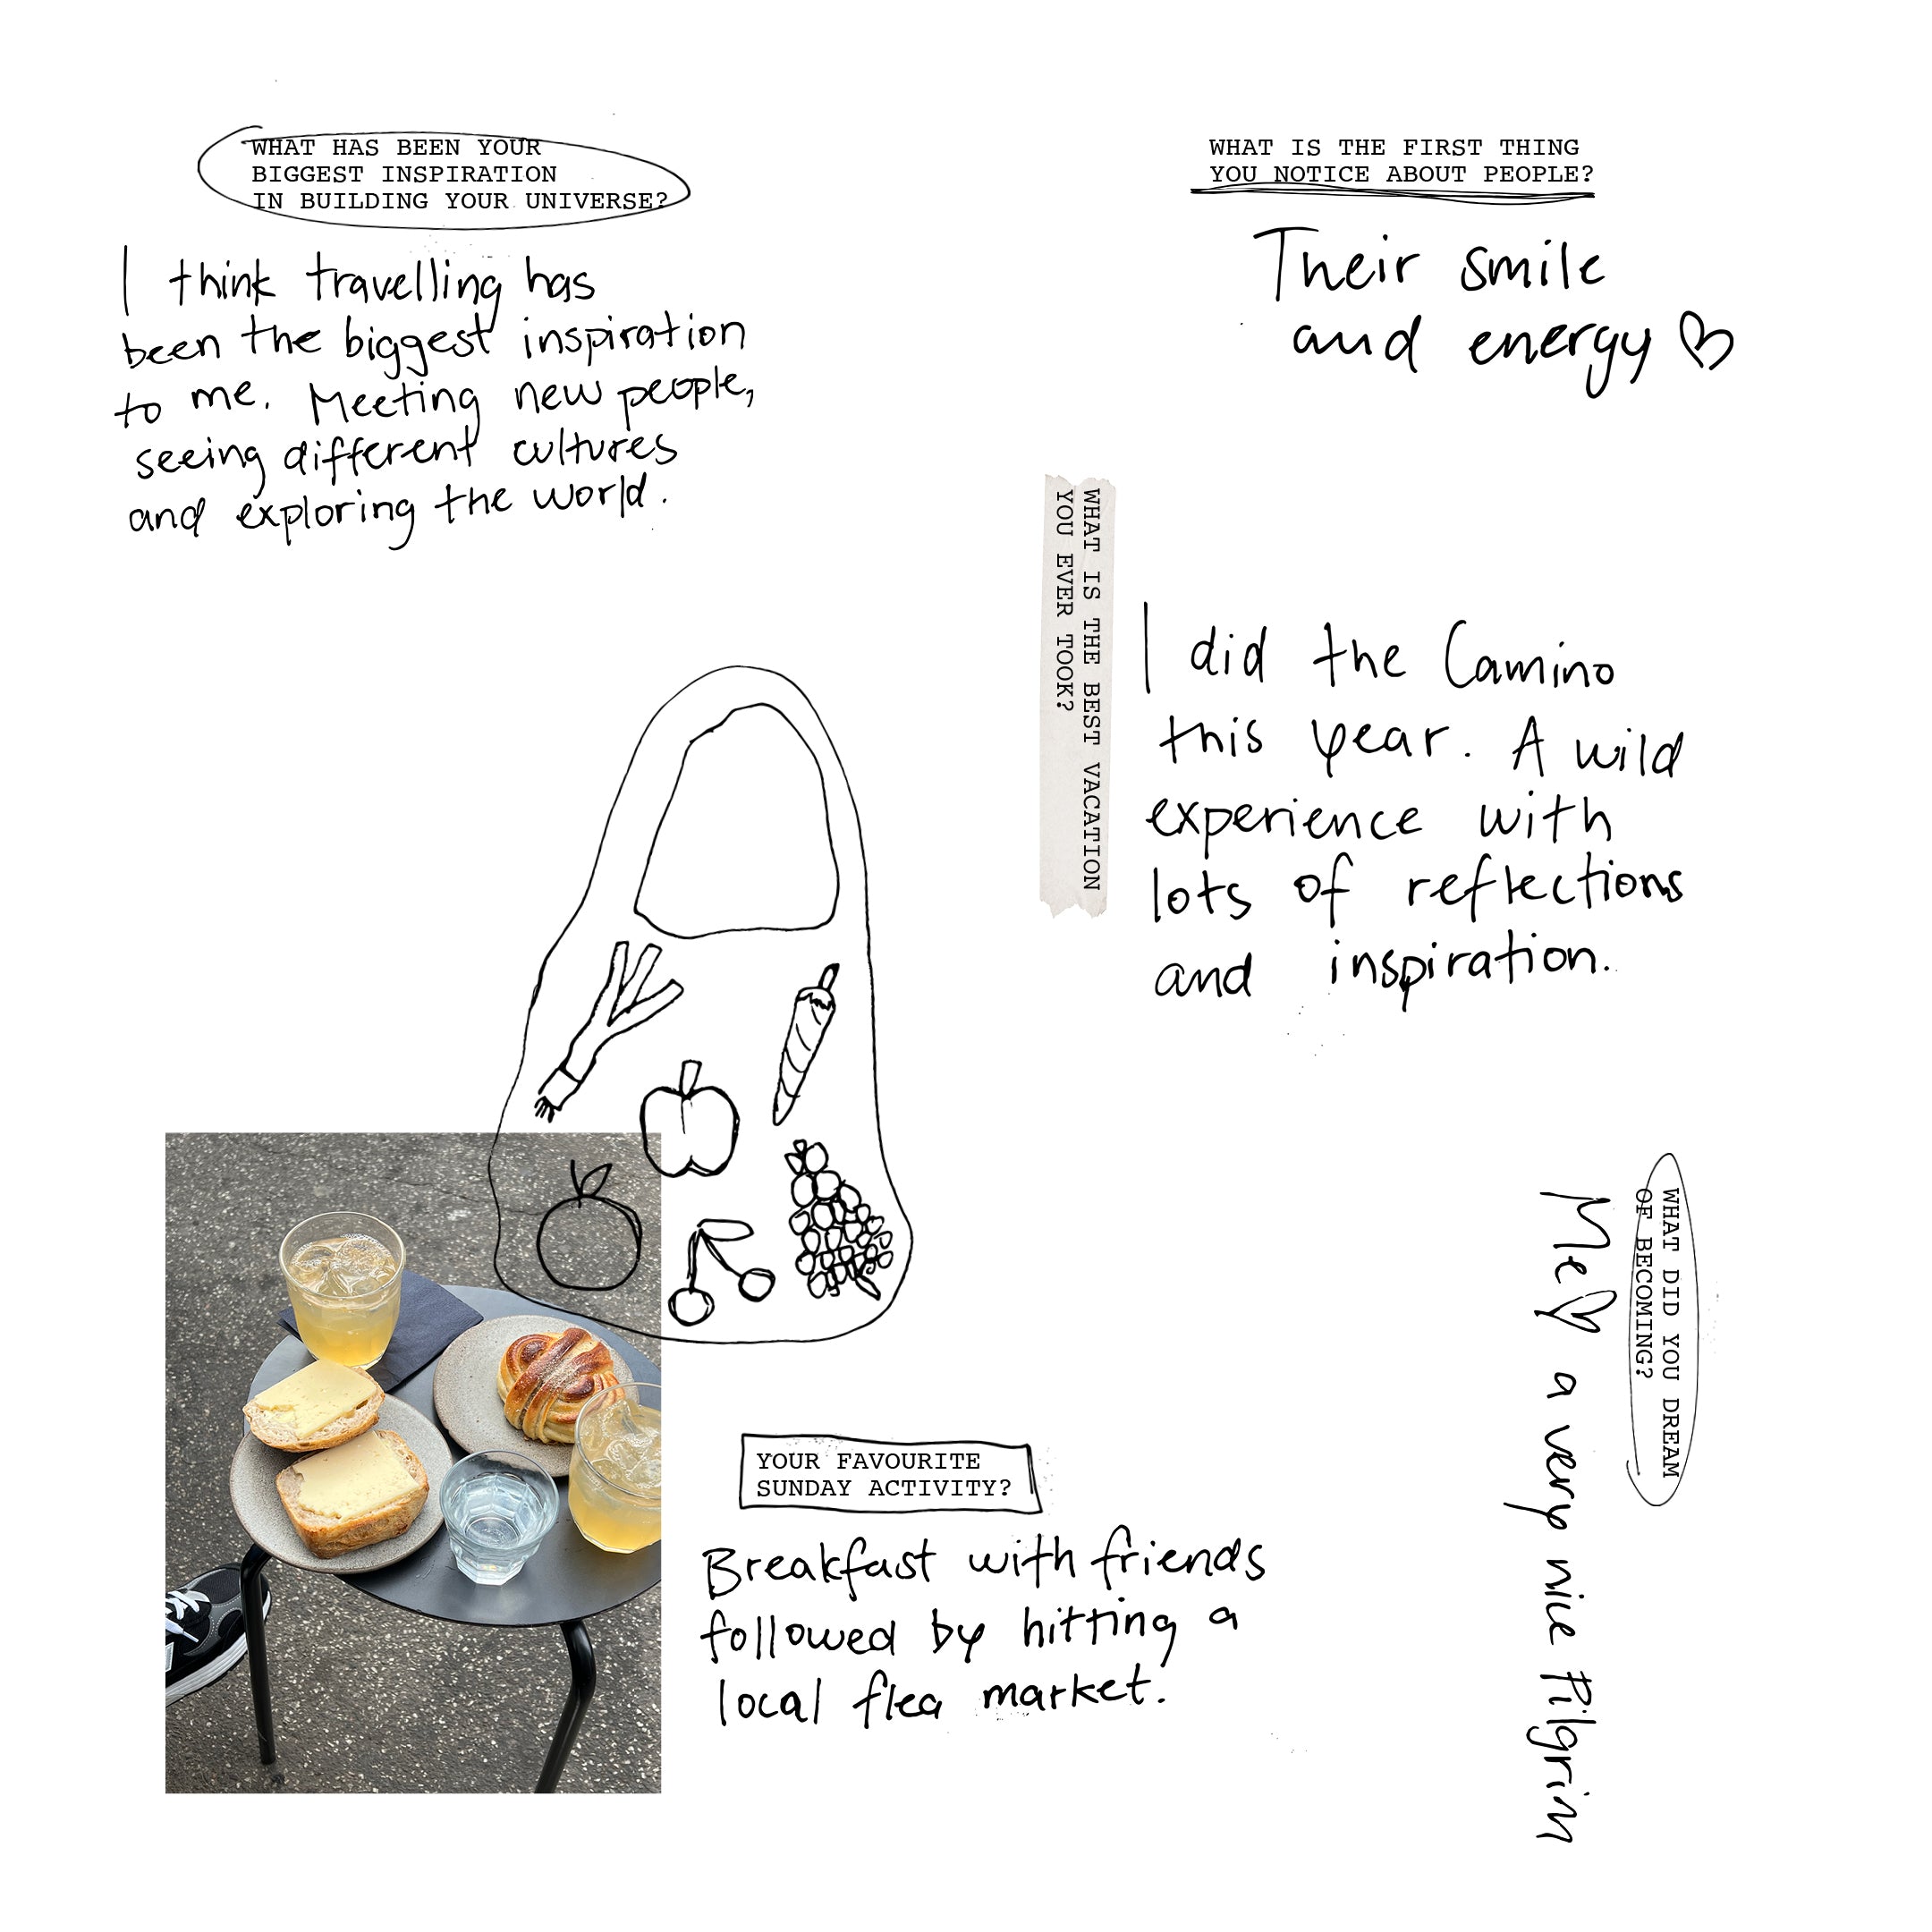 WHAT HAS BEEN YOUR
BIGGEST INSPIRATION
IN BUILDING YOUR UNIVERSE?
I think travelling has
been the biggest inspiration
to me. Meeting new people,
seeing different cultures
and exploring the world.
WHAT IS THE FIRST THING
YOU NOTICE ABOUT PEOPLE?
Their smile
and energy ♡
WHAT IS THE BEST VACATION
YOU EVER TOOK?
I did the Camino
this year. A wild
experience with
lots of reflections
and inspiration.
YOUR FAVOURITE
SUNDAY ACTIVITY?
Breakfast with friends
followed by hitting a
local flea market.
WHAT DID YOU DREAM
OF BECOMING?
Me♡ a very nice Pilgrim